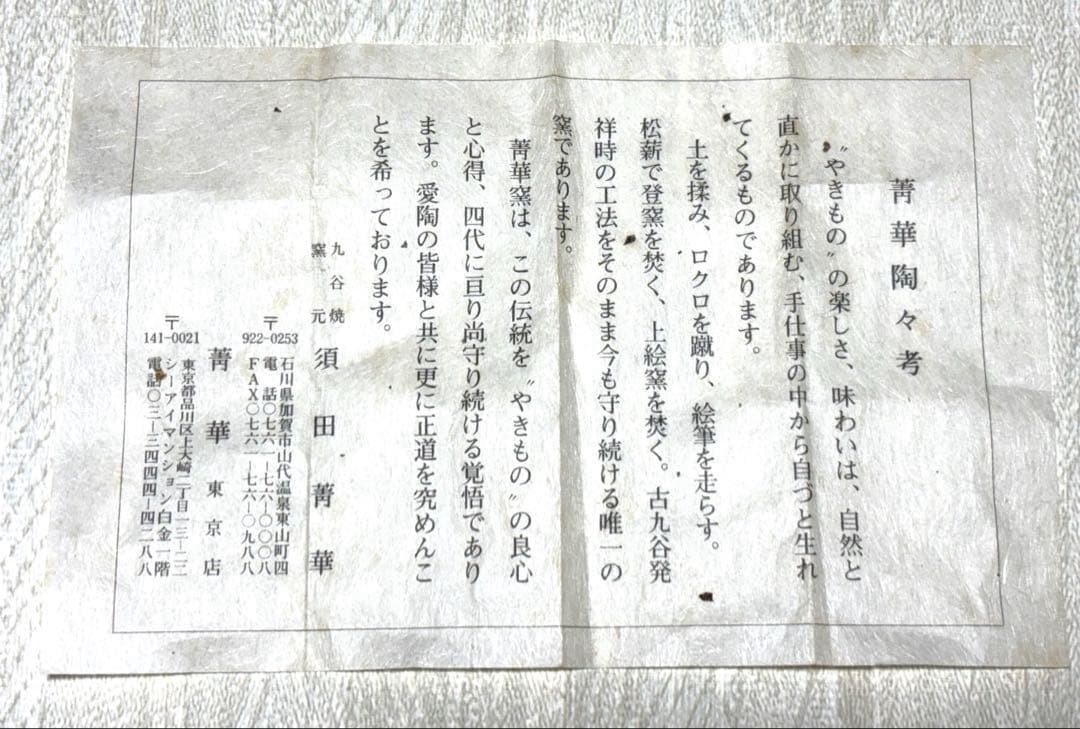 菁華陶々考
〝やきもの〟の楽しさ、味わいは、自然と
直かに取り組む、手仕事の中から自づと生れ
てくるものであります。
土を揉み、ロクロを蹴り、絵筆を走らす。
松薪で登窯を焚く、上絵窯を焚く。古九谷発
祥時の工法をそのまま今も守り続ける唯一の
窯であります。
菁華窯は、この伝統を〝やきもの〟の良心
と心得、四代に亘り尚守り続ける覚悟であり
ます。愛陶の皆様と共に更に正道を究めんこ
とを希っております。
九谷焼
窯元
須田菁華
〒922-0253
石川県加賀市山代温泉東山町四
電話〇七六一―七六―〇〇〇八
FAX〇七六一―七六―〇九八八
菁華東京店
〒141-0021
東京都品川区上大崎二丁目一三―二二
シーアイマンション白金一階
電話〇三―三四四四―四二八八